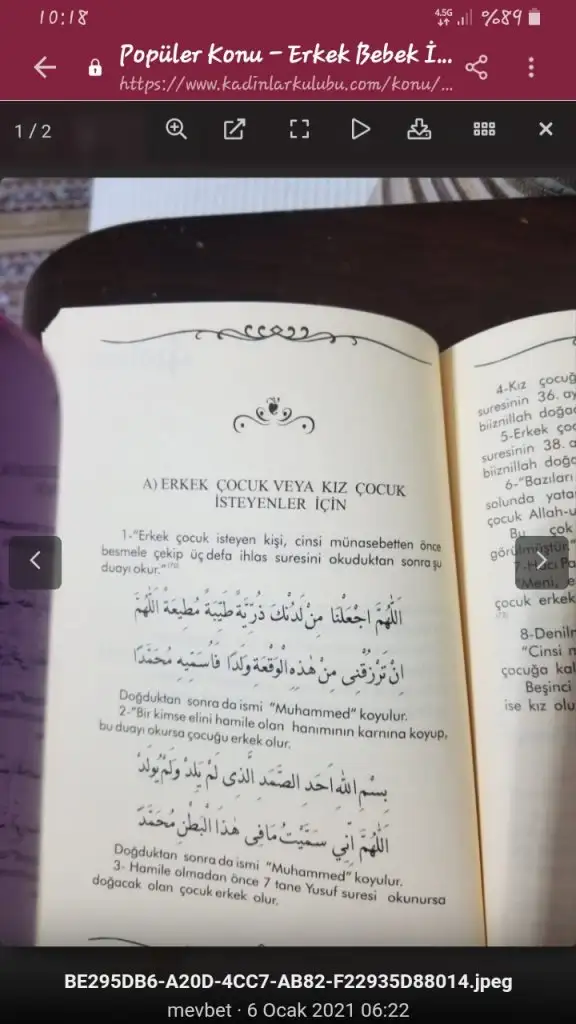 10:18
4.5G
%89
Popüler Konu – Erkek Bebek İ...
https://www.kadinlarkulubu.com/konu/...
1 / 2
A) ERKEK ÇOCUK VEYA KIZ ÇOCUK
İSTEYENLER İÇİN
1-"Erkek çocuk isteyen kişi, cinsi münasebetten önce
besmele çekip üç defa ihlas suresini okuduktan sonra şu
duayı okur."
اَللّٰهُمَّ اجْعَلْنَا مِنْ لَدُنْكَ ذُرِّيَّةً طَيِّبَةً مُطِيعَةً اَللّٰهُمَّ
اِنْ تَرْزُقْنِى مِنْ هٰذِهِ الْوَقْعَةِ وَلَدًا فَاُسَمِّيهِ مُحَمَّدًا
Doğduktan sonra da ismi "Muhammed" koyulur.
2-"Bir kimse elini hamile olan hanımının karnına koyup,
bu duayı okursa çocuğu erkek olur.
بِسْمِ اللّٰهِ اَحَدِ الصَّمَدِ الَّذِى لَمْ يَلِدْ وَلَمْ يُولَدْ
اَللّٰهُمَّ اِنِّي سَمَّيْتُ مَافِى هٰذَا الْبَطْنِ مُحَمَّدً
Doğduktan sonra da ismi "Muhammed" koyulur.
3- Hamile olmadan önce 7 tane Yusuf suresi okunursa
doğacak olan çocuk erkek olur.
4-Kız çocuğ
suresinin 36. ay
biiznillah doğac
5-Erkek ço
suresinin 38. a
biiznillah doğa
6-"Bazıları
solunda yata
çocuk Allah-u
Bu çok
görülmüştür."
7-Hacı Pa
"Meni, e
çocuk erkek
8-Denilm
"Cinsi m
çocuğa kal
Beşinci
ise kız olu
BE295DB6-A20D-4CC7-AB82-F22935D88014.jpeg
mevbet · 6 Ocak 2021 06:22